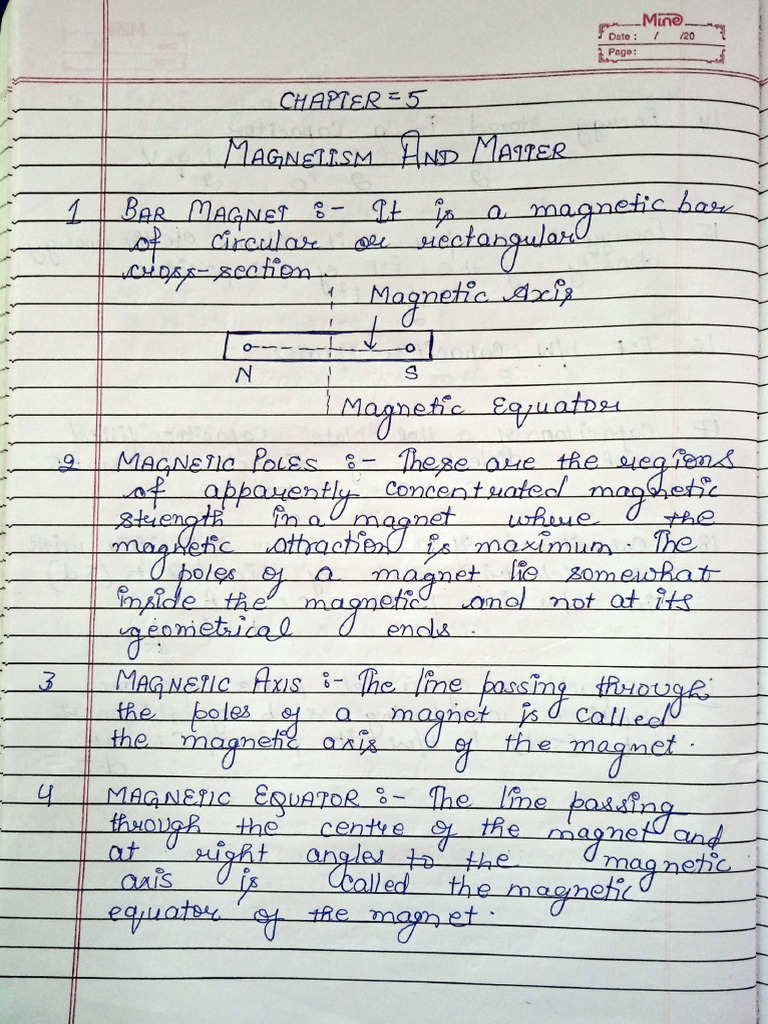 Mine
Date : / /20
Page:
CHAPTER = 5
MAGNETISM AND MATTER
1 BAR MAGNET :- It is a magnetic bar
of circular or rectangular
cross-section
Magnetic Axis
N S
Magnetic Equator
2 MAGNETIC POLES :- These are the regions
of apparently concentrated magnetic
strength in a magnet where the
magnetic attraction is maximum. The
poles of a magnet lie somewhat
inside the magnetic and not at its
geometrical ends.
3 MAGNETIC AXIS :- The line passing through
the poles of a magnet is called
the magnetic axis of the magnet.
4 MAGNETIC EQUATOR :- The line passing
through the centre of the magnet and
at right angles to the magnetic
axis is called the magnetic
equator of the magnet.